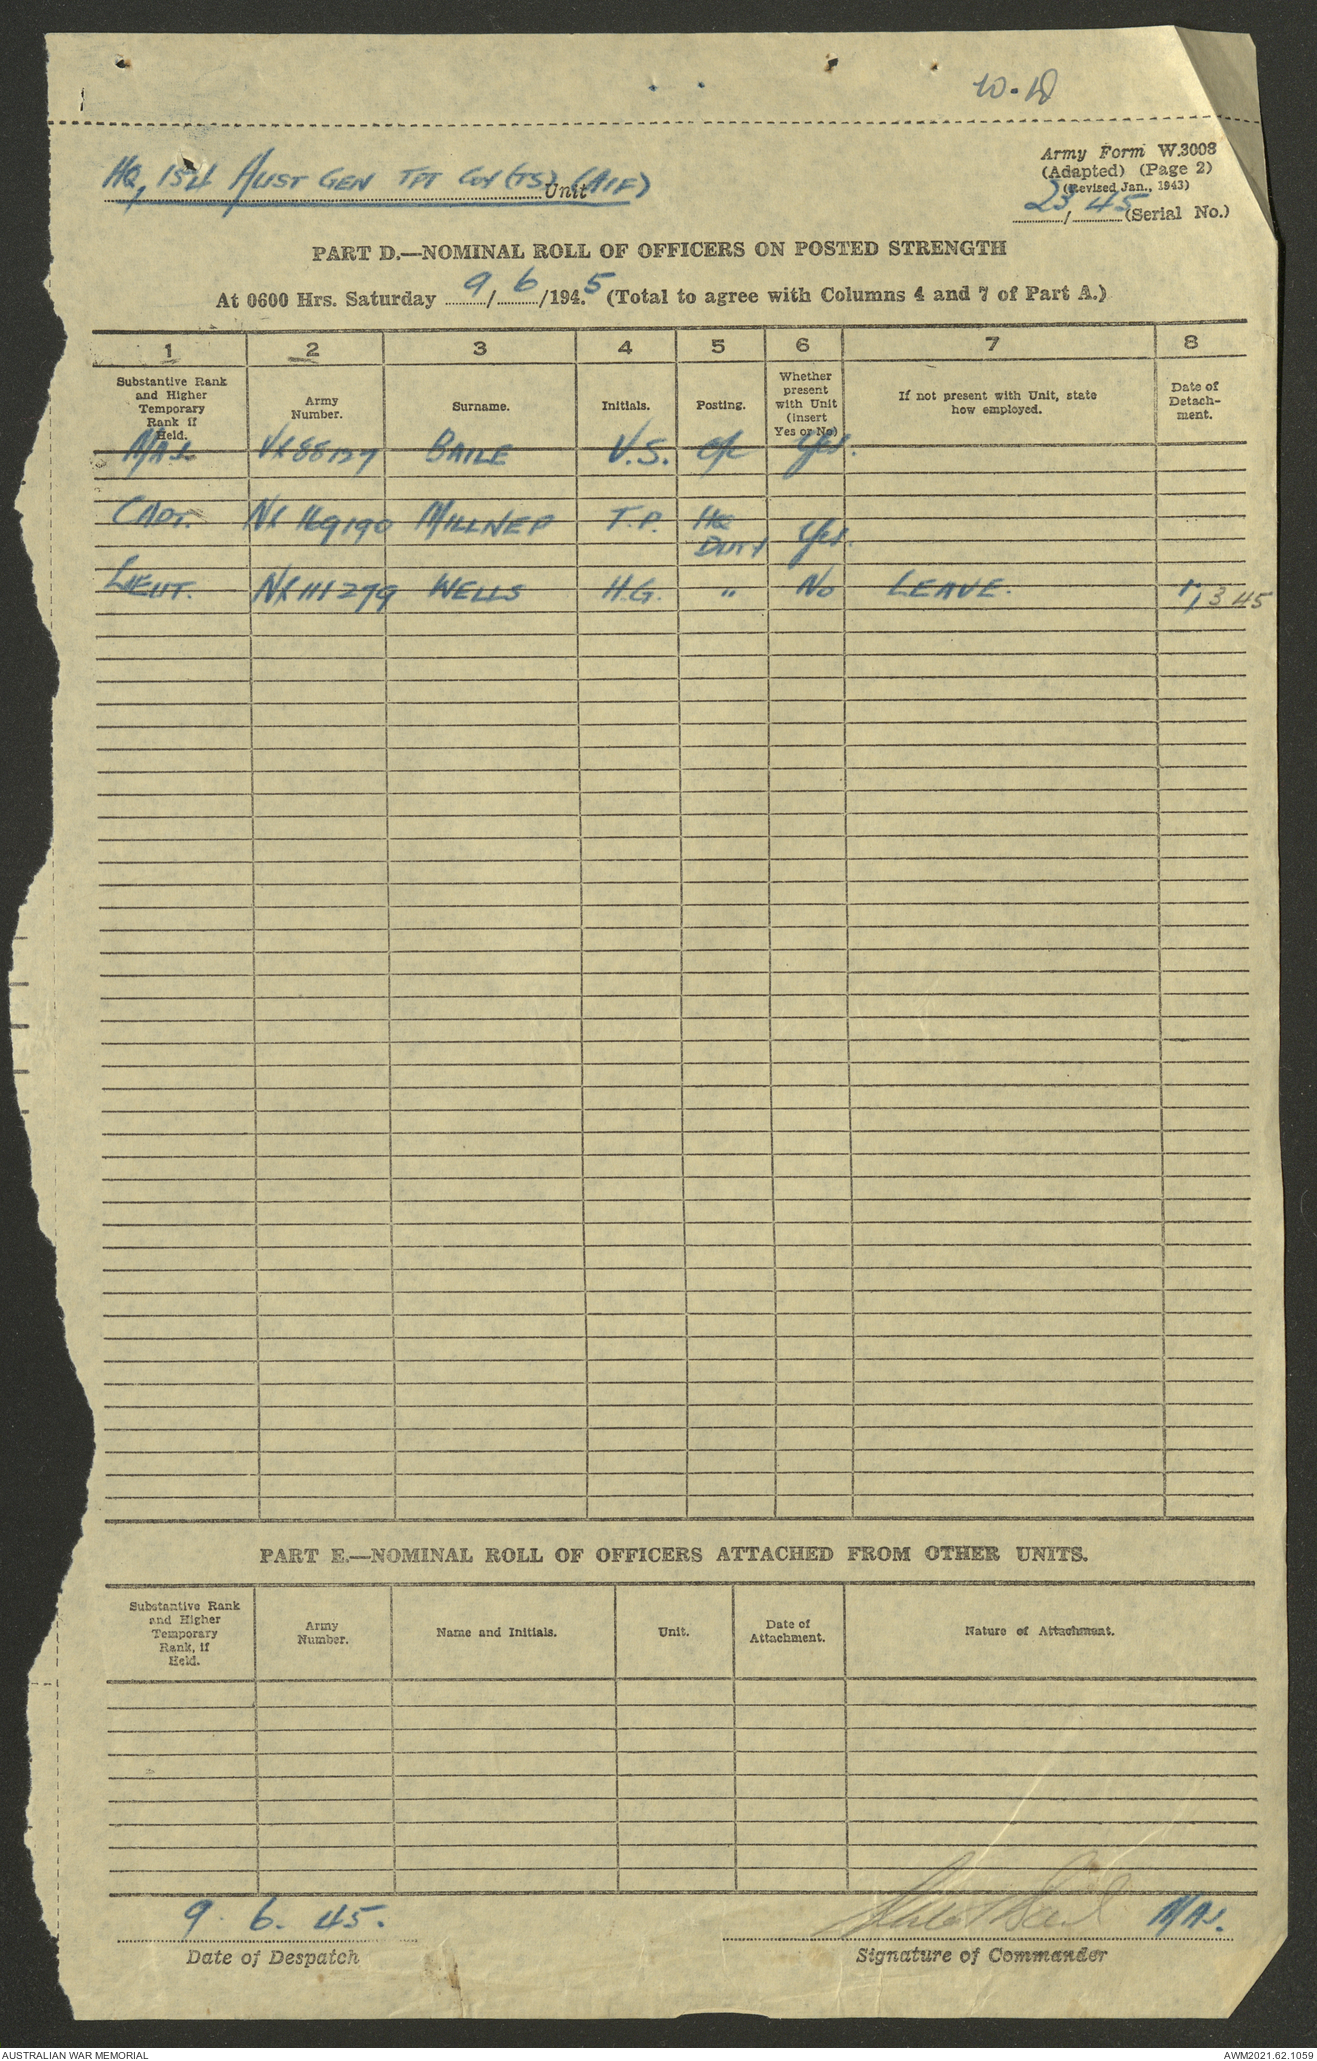 10.18
Army Form W.3008
(Adapted) (Page 2)
(Revised Jan., 1943)
23/45 (Serial No.)
HQ, 154 AUST GEN TPT COY (TS) (AIF) Unit
PART D.—NOMINAL ROLL OF OFFICERS ON POSTED STRENGTH
At 0600 Hrs. Saturday 9/6/1945 (Total to agree with Columns 4 and 7 of Part A.)
1 2 3 4 5 6 7 8
Substantive Rank and Higher Temporary Rank if Held. Army Number. Surname. Initials. Posting. Whether present with Unit (insert Yes or No) If not present with Unit, state how employed. Date of Detach-ment.
MAJ. VX88127 BAILE V.S. O/C Yes.
CAPT. NX169190 MILLNER T.P. HQ DUTY Yes.
LIEUT. NX111279 WELLS H.G. " No LEAVE. 1, 3 45
PART E.—NOMINAL ROLL OF OFFICERS ATTACHED FROM OTHER UNITS.
Substantive Rank and Higher Temporary Rank, if Held. Army Number. Name and Initials. Unit. Date of Attachment. Nature of Attachment.
9. 6. 45. MAJ.
Date of Despatch Signature of Commander
AUSTRALIAN WAR MEMORIAL AWM2021.62.1059